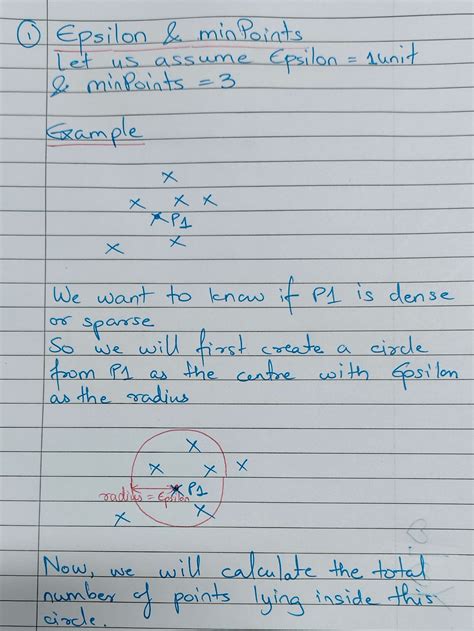 ① Epsilon & minPoints
Let us assume Epsilon = 1unit
& minPoints = 3
Example
P1
We want to know if P1 is dense
or sparse
So we will first create a circle
from P1 as the centre with Epsilon
as the radius
radius = Epsilon P1
Now, we will calculate the total
number of points lying inside this
circle.